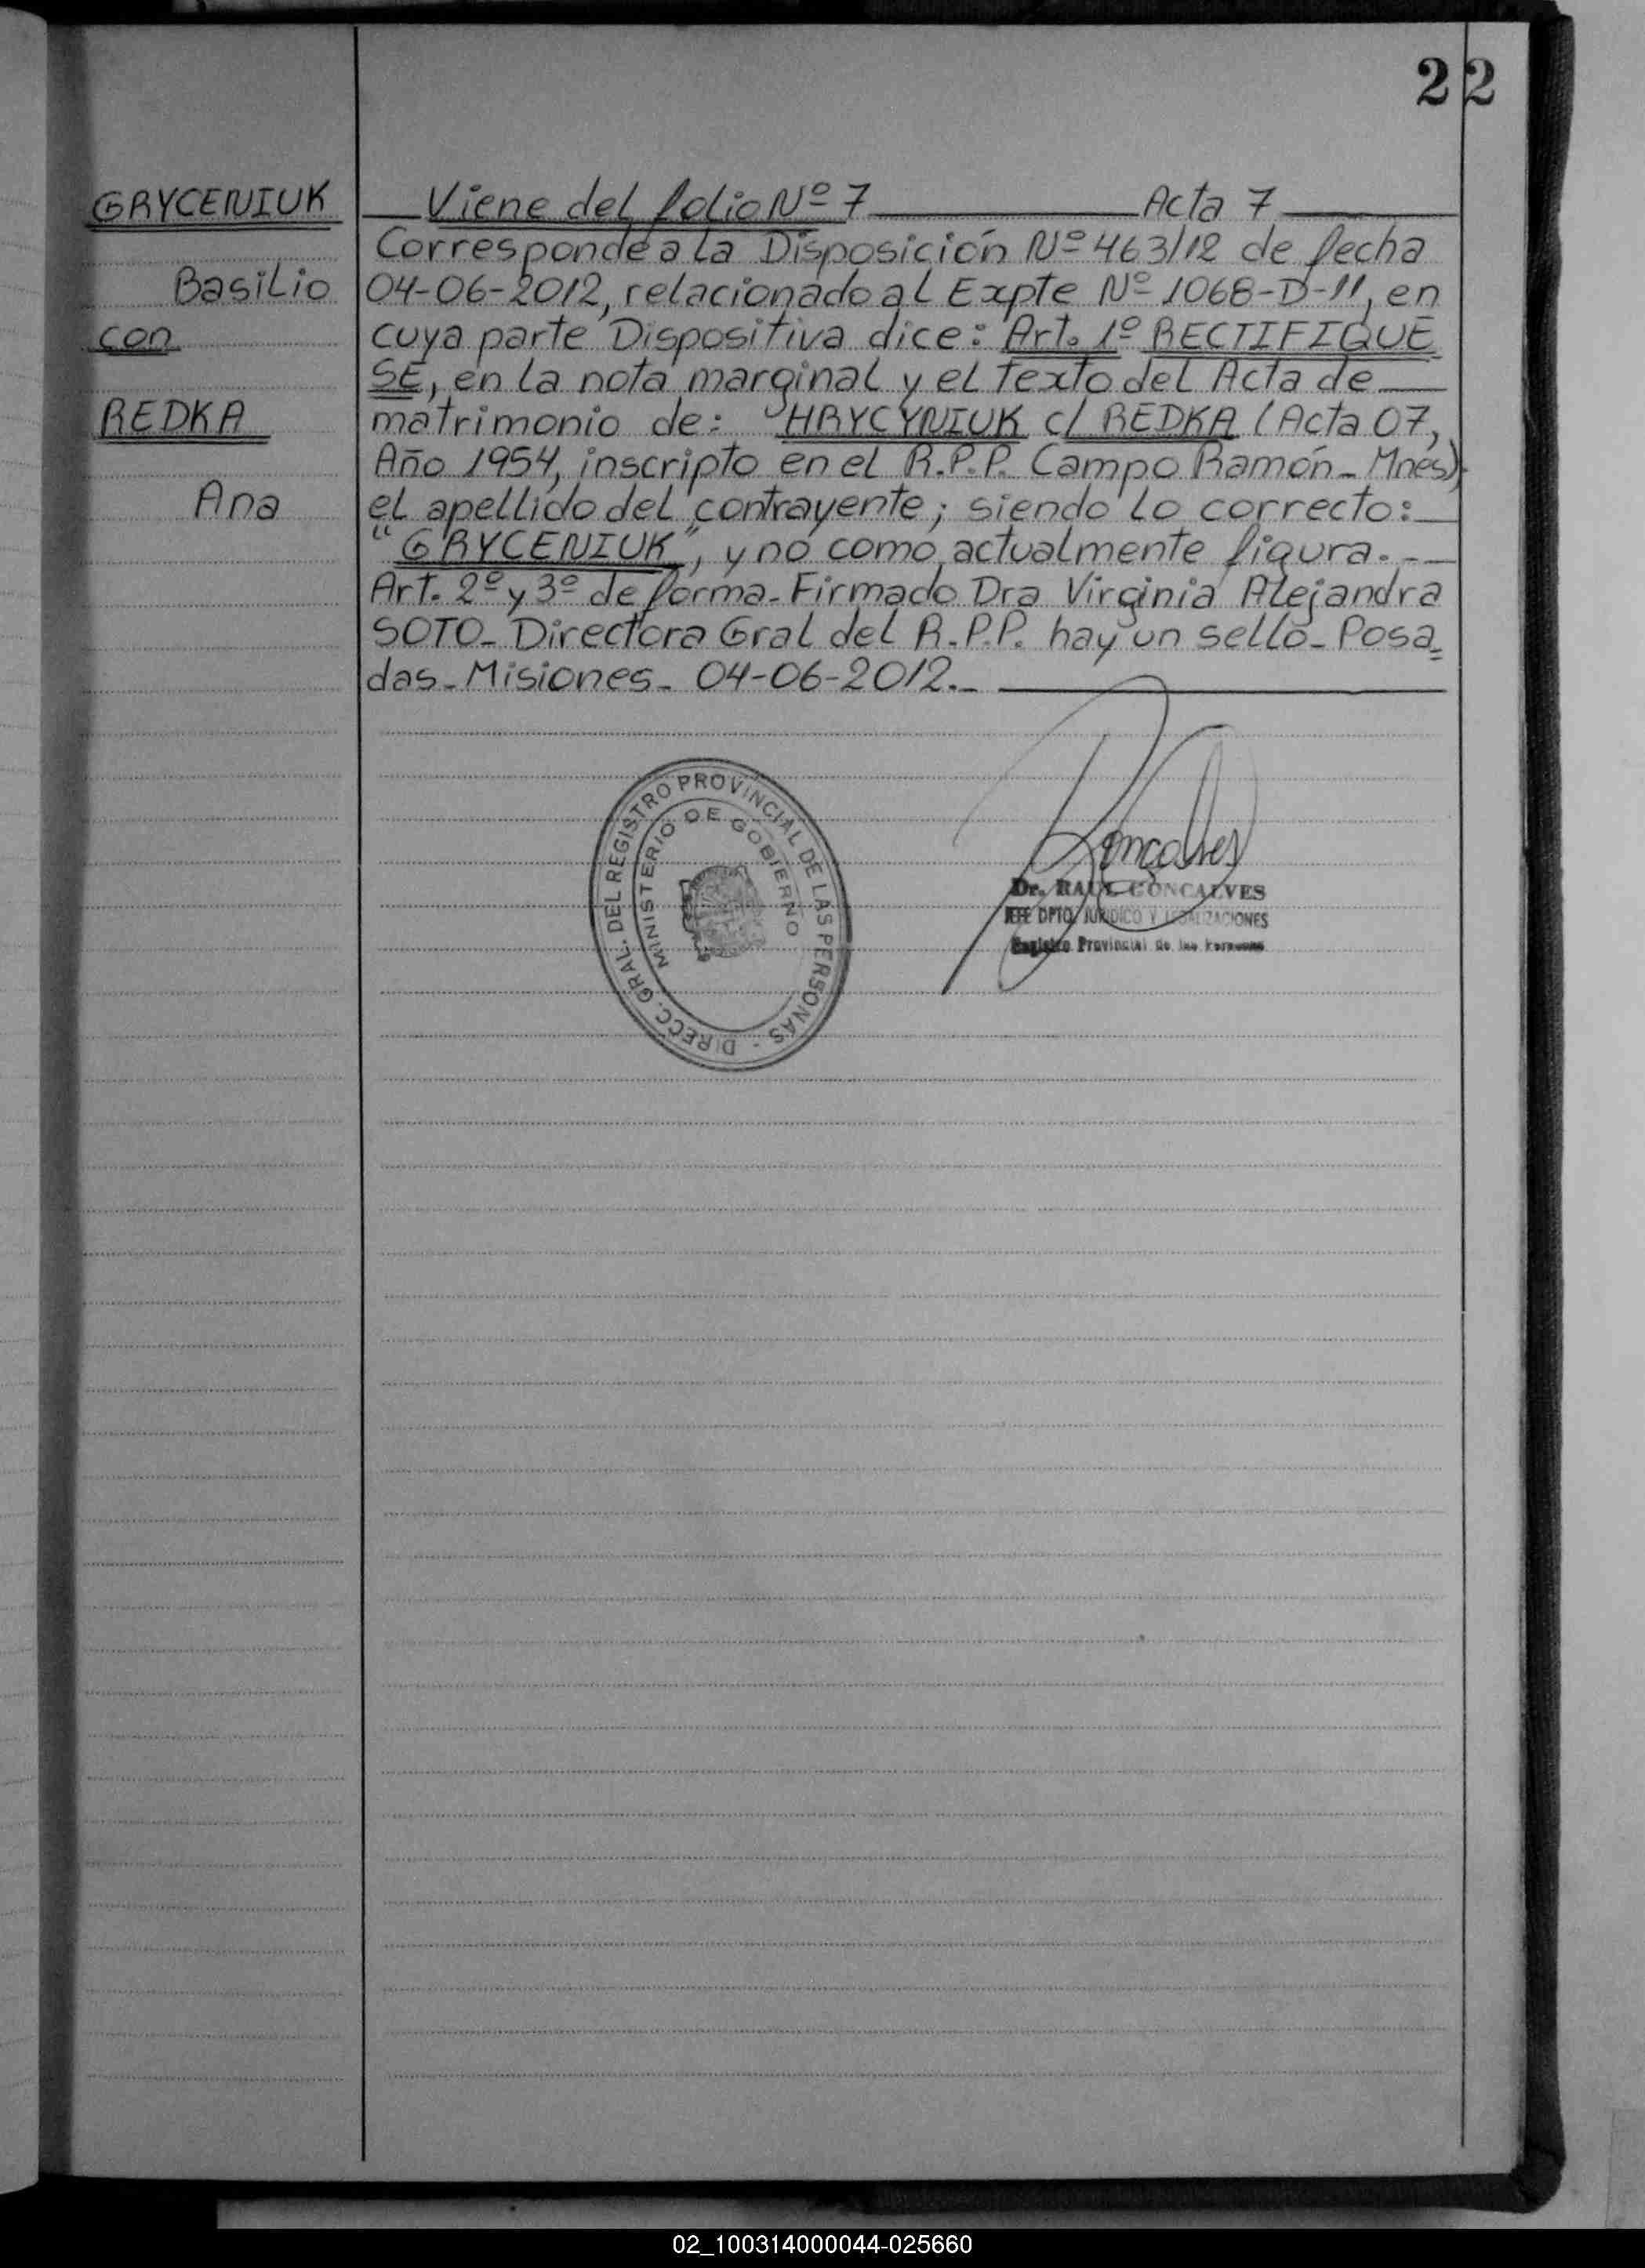 22
GRYCENIUK
Basilio
con
REDKA
Ana
Viene del folio Nº 7 Acta 7
Corresponde a la Disposición Nº 463/12 de fecha
04-06-2012, relacionado al Expte Nº 1068-D-11, en
cuya parte Dispositiva dice: Art. 1º RECTIFIQUE
SE, en la nota marginal y el texto del Acta de
matrimonio de: "HRYCYNIUK c/ REDKA (Acta 07,
Año 1954, inscripto en el R.P.P. Campo Ramón - Mnes),
el apellido del contrayente; siendo lo correcto:
"GRYCENIUK", y nó como actualmente figura.-
Art. 2º y 3º de forma - Firmado Dra Virginia Alejandra
SOTO - Directora Gral del R.P.P. hay un sello - Posa=
das - Misiones - 04-06-2012.-
DIRECC. GRAL. DEL REGISTRO PROVINCIAL DE LAS PERSONAS -
MINISTERIO DE GOBIERNO
Goncalves
Dr. RAUL GONCALVES
JEFE DPTO. JURIDICO Y LEGALIZACIONES
Registro Provincial de las Personas
02_100314000044-025660